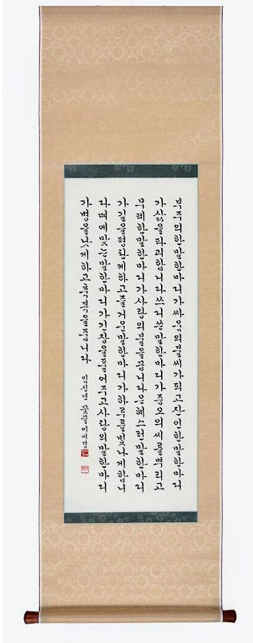 부주의한말한마디가싸움의불씨가되고잔인한말한마디
가삶을파괴합니다쓰디쓴말한마디가증오의씨를뿌리고
무례한말한마디가사랑의불을끕니다은혜스런말한마디
가길을평탄케하고즐거운말한마디가하루를빛나게합니
다때에맞는말한마디가긴장을풀어주고사랑의말한마디
가병을낫게하고축복을줍니다